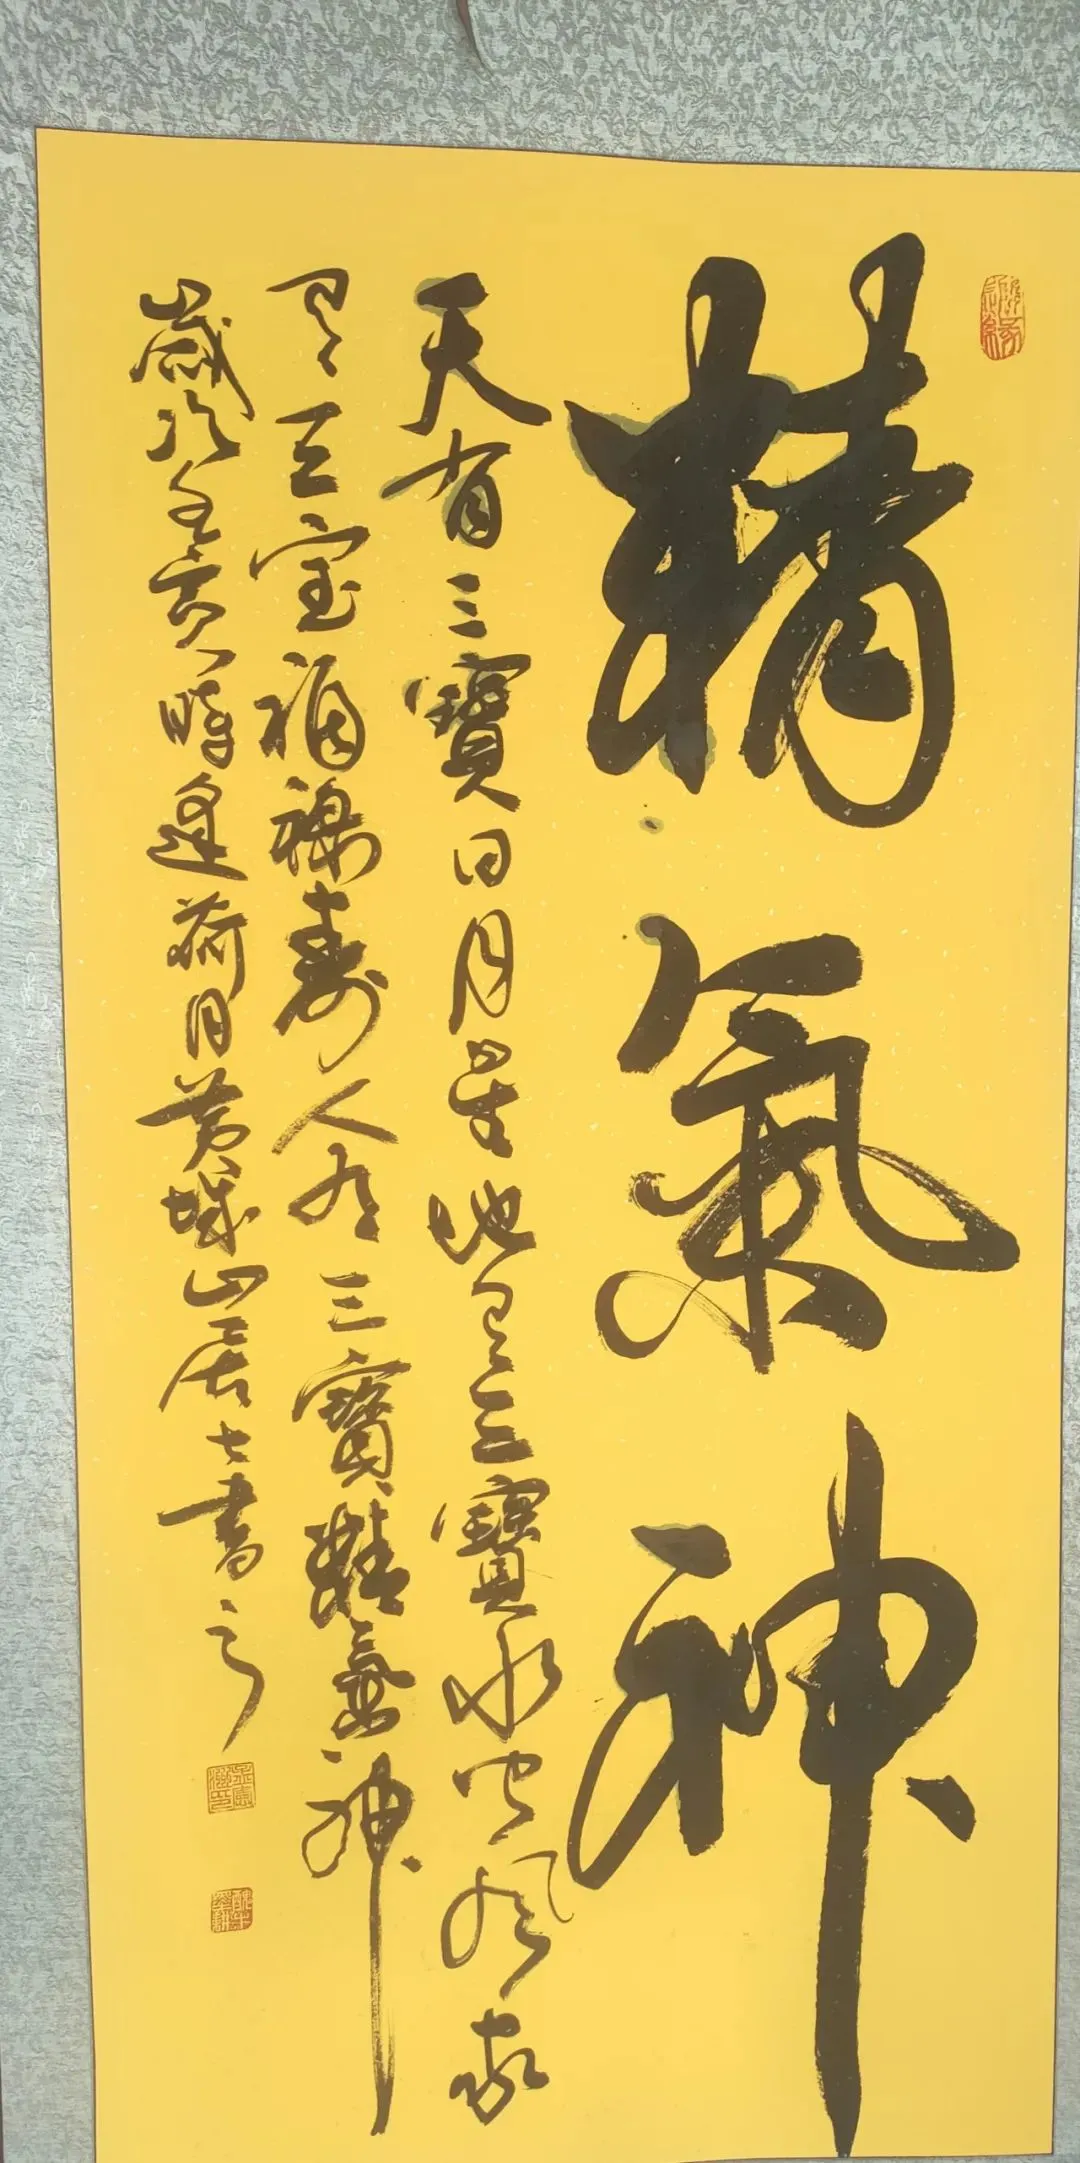 精氣神
天有三寶日月星地有三寶水火風家
有三宝福祿壽人有三寶精氣神
歲次壬寅時逢荷月黄城山居士書之